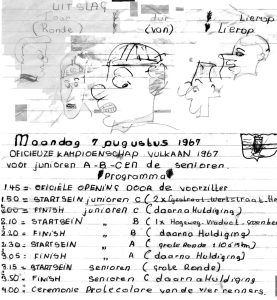 UITSLAG
door dur Lierop
(Ronde) (van) Lierop
Maandag 7 augustus 1967
OFICIEUZE KAMPIOENSCHAP VULKAAN 1967
voor junioren A-B-C EN de senioren.
Programma
1.45 = OFICIËLE OPENING DOOR de voorzitter
1.50 = STARTSEIN junioren C (2x
2.00 = FINISH junioren C (daarna Huldiging)
2.10 = STARTSEIN " B (1x Hogeweg-
2.20 = FINISH " B (daarna Huldiging)
2.30 = STARTSEIN " A (grote Ronde
3.05 = FINISH " A (daarna Huldiging)
3.15 = STARTSEIN senioren (grote Ronde)
3.50 = FINISH senioren (daarna Huldiging)
4.00 = Ceremonie Protocolaire van de vier renners.